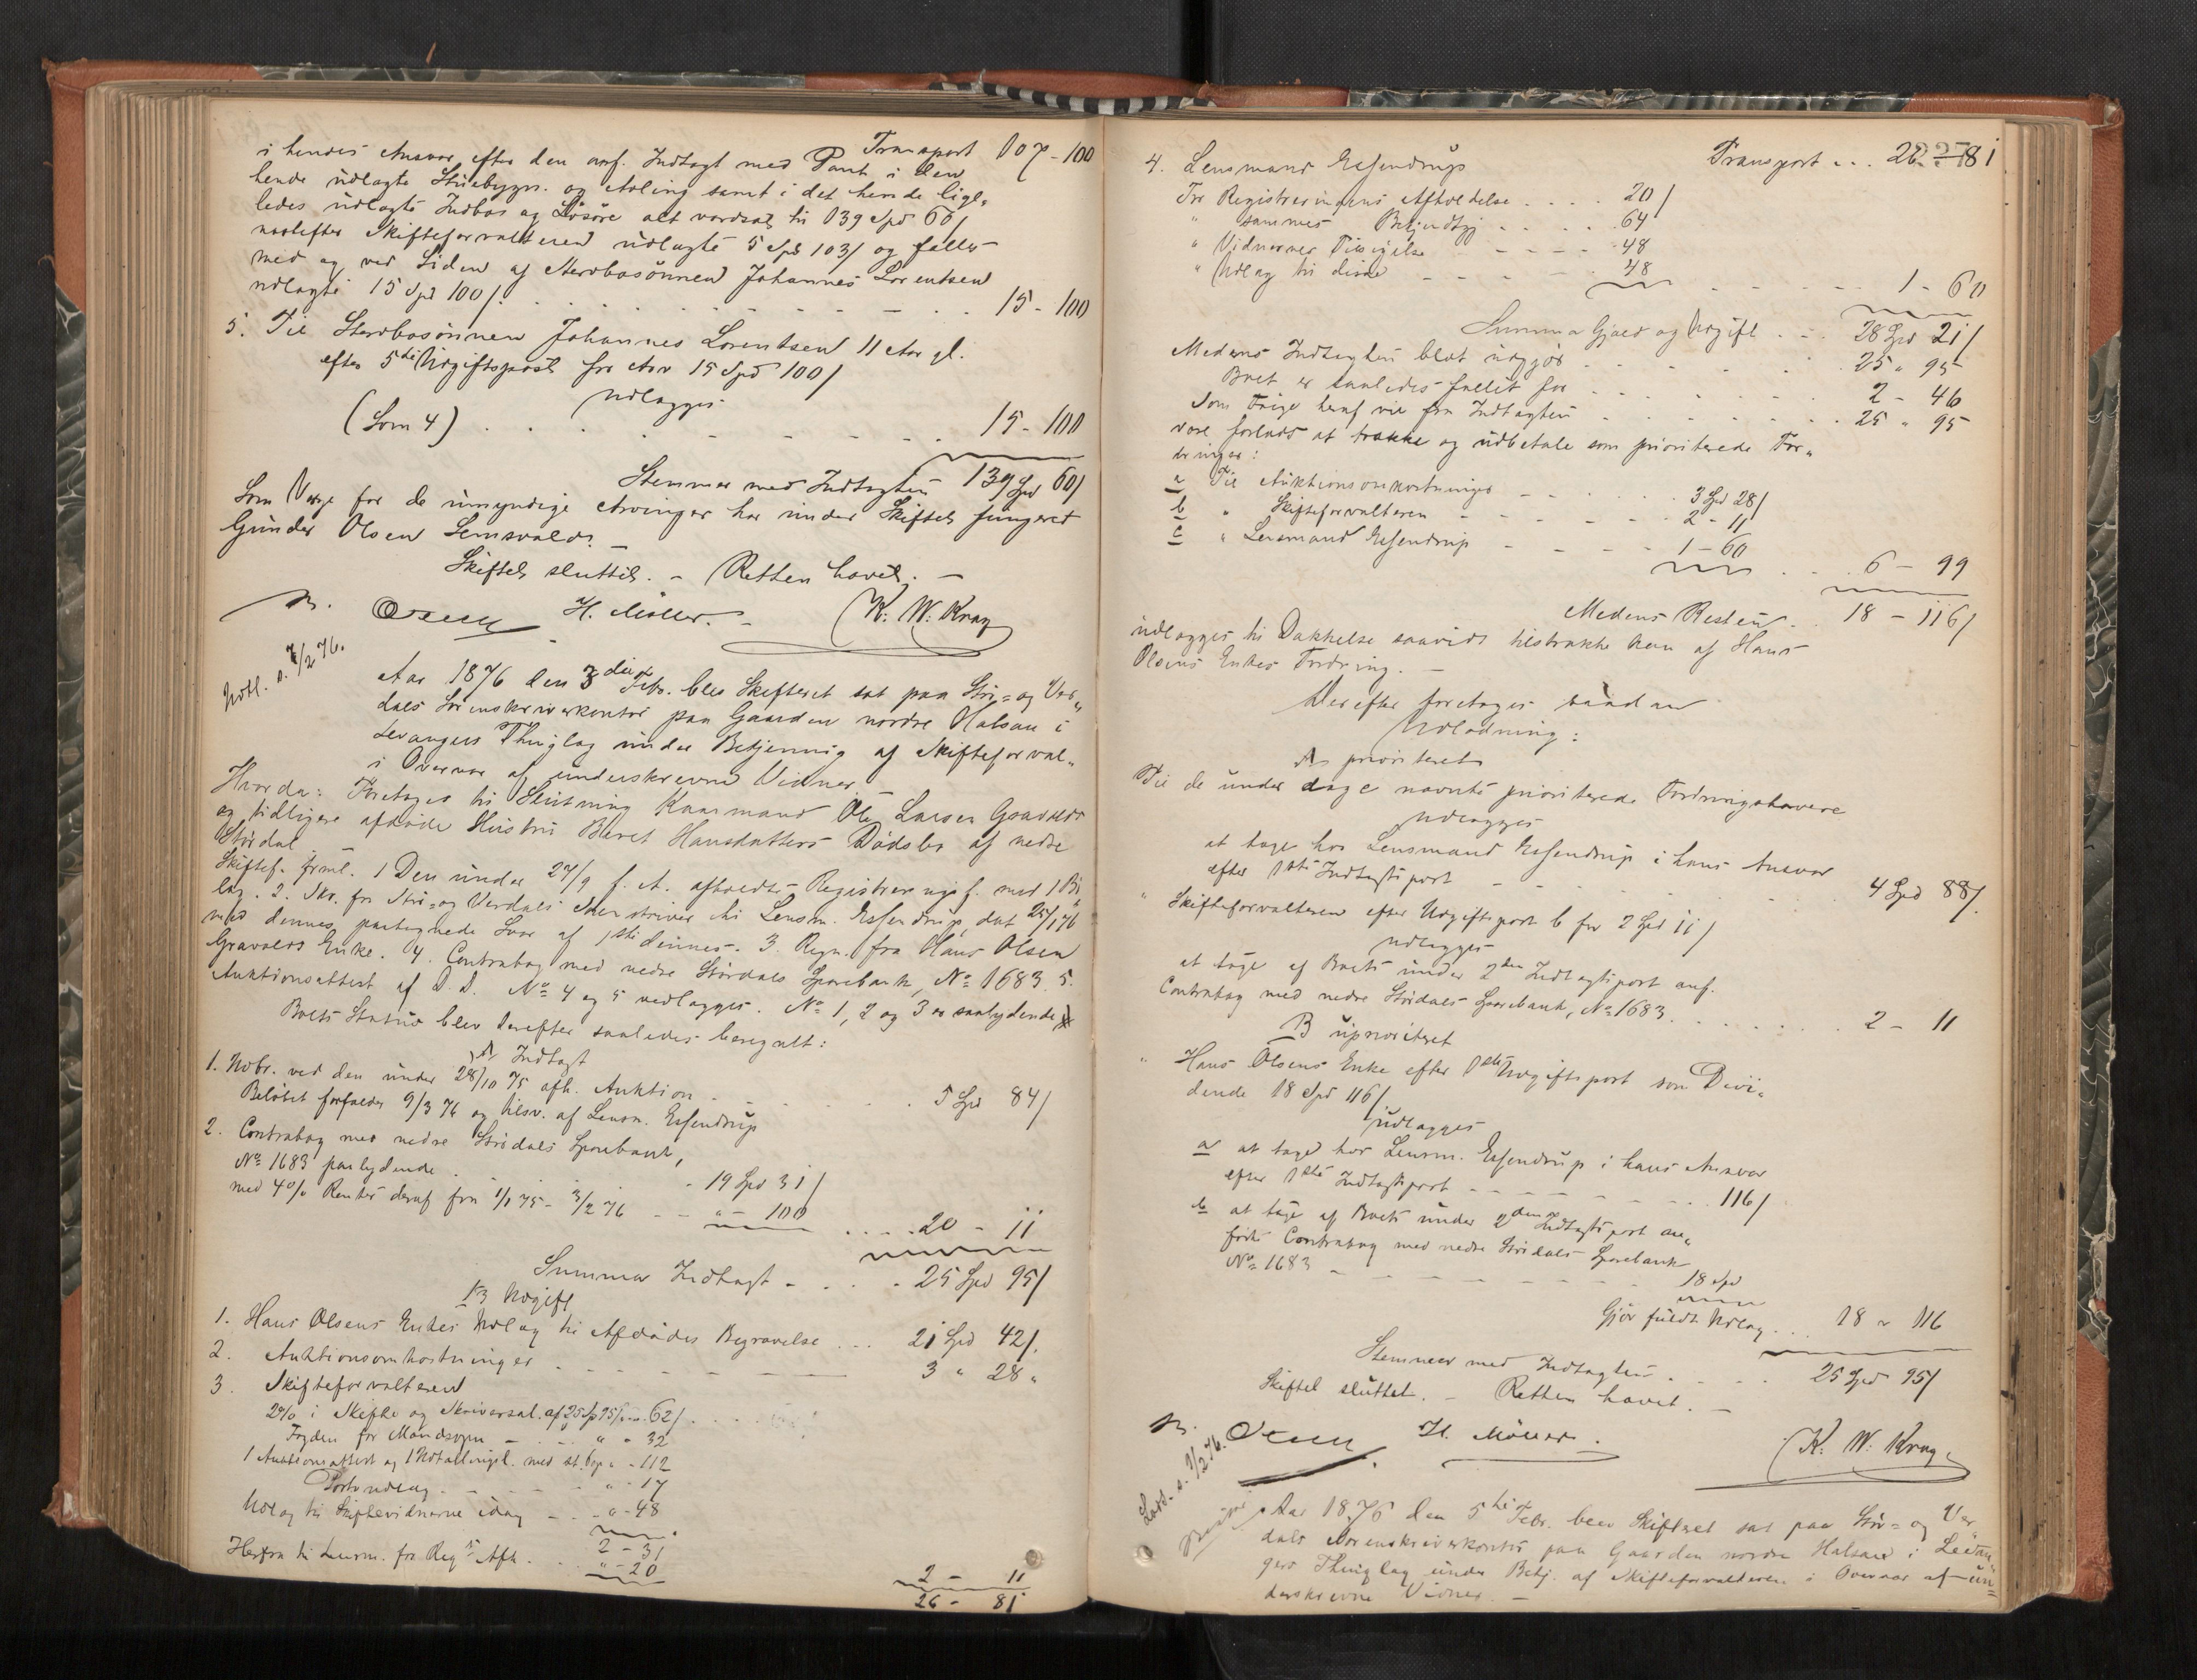 Transport 107-100
i hendes Ansvar efter den anf. Indtægt med Pant i den
hende udlagte Stuebygn. og Avling samt i det hende lige-
ledes udlagte Indbo og Løsøre alt værdsat til 139 Spd 60/
næstefter Skifteforvalteren udlagte 5 Spd 103/ og falles
med og ved Siden af Stervbosønnen Johannes Lorentsen
udlagte 15 Spd 100/ . . . 15 - 100
5. Til Stervbosønnen Johannes Lorentsen 11 Aar gl.
efter 5te Udgiftspost for Arv 15 Spd 100/
udlægges
(Som 4) . . . 15 - 100
Stemmer med Indtægten 139 Spd 60/
Som Værge for de umyndige Arvinger har under Skiftet fungeret
Gunder Olsen Lemsvald.
Skiftet sluttet. - Retten hævet. -
H. Møller. K. W. Krag
Udtl. s. 7/2 76.
Aar 1876 den 3die Febr. blev Skifteret sat paa Stør- og Ver-
dals Sorenskriverkontor paa Gaarden nordre Halsan i
Levangers Thinglag under Betjening af Skifteforval.
i Overvær af underskrevne Vidner. -
Hvorda: Foretoges til Slutning Kaarmand Ole Larsen Gravelds
og tidligere afdøde Hustru Beret Hansdatters Dødsbo af nedre
Størdal
Skiftef. freml. 1 Den under 27/9 f. A. afholdte Registreringsf. med 1 Bi-
lag. 2. Skr. fra Stør- og Verdals Skenskriver til Lensm. Essendrup dat 25/1 76
med dennes paategnede Svar af 1ste dennes. 3. Regn. fra Hans Olsen
Gravelds Enke. 4. Contrabog med nedre Størdals Sparebank, No 1683. 5.
Auktionsattest af D. D. No 4 og 5 vedlægges. No 1, 2 og 3 er saalydende
Boets Status blev derefter saaledes beregnet:
A Indtægt
1. Udbr. ved den under 28/10 75 afh. Auktion . . . 5 Spd 84/
Beløbet forfalder 9/3 76 og tilsv. af Lensm. Essendrup
2. Contrabog med nedre Størdals Sparebank,
No 1683 paalydende . . . 19 Spd 31/
med 4% Renter deraf fra 1/1 75 - 3/2 76 - - " - 100 . . . . 20 - 11
Summa Indtægt - . . . 25 Spd 95/
B Udgift
1. Hans Olsens Enkes Udlæg til Afdødes Begravelse . . . 21 Spd 42/.
2. Auktionsomkostninger . . . 3 " 28 "
3. Skifteforvalteren
2% i Skifte og Skriversal. af 25 Sp 95/ . . . 62/
Fogden for Mandsopn - . . " " 32
1 Auktionsattest og 1 Udtællingsl. med st. - 112
Portoudlæg . - - " - 17
Udlæg til Skiftevidnerne idag - - " - 48
2 - 31
Herfra til Lensm. for Reg's Afh. . . " - 20
2 - 11
26 - 81
Transport . . . 26 - 81
227
4. Lensmand Essendrup
For Registreringens Afholdelse . . . . 20/
" sammes Betjendtgj . . . . 64
" Vidnernes Tilsigelse - - - - 48
" Udlæg til disse - - - - 48
1 - 60
Summa Gjæld og Udgift . . . 28 Spd 21/
Medens Indtægten blot udgjør . . . 25 " 95
Boet er saaledes fallit for . . . 2 - 46
Som Følge heraf vil fra Indtægten . . . 25 " 95
være forlods at trække og udbetale som prioriterede For-
dringer:
a Til Auktionsomkostninger - . . . 3 Spd 28/
b " Skifteforvalteren - - - - 2 - 11
c " Lensmand Essendrup - - - - 1 - 60
. . . 6 - 99
Medens Resten . . 18 - 116/
udlægges til Dækkelse saavidt tilstrække kan af Hans
Olsens Enkes Fordring. -
Derefter foretoges saadan
Udlodning:
A prioriteret
Til de under a og c nævnte prioriterede Fordringshavere
udlægges
at tage hos Lensmand Essendrup i hans Ansvar
efter 1ste Indtægtspost - - - . . . 4 Spd 88/.
" Skifteforvalteren efter Udgiftspost b for 2 Spd 11/
udlægges
at tage af Boets under 2den Indtægtspost anf.
Contrabog med nedre Størdals Sparebank, No 1683 . . . 2 - 11
B uprioriteret
" Hans Olsens Enke efter 1ste Udgiftspost som Divi-
dende 18 Spd 116/
udlægges
a at tage hos Lensm. Essendrup i hans Ansvar
efter 1ste Indtægtspost - - - . . . 116/
b at tage af Boets under 2den Indtægtspost an-
førte Contrabog med nedre Størdals Sparebank
No 1683 - - - - 18 Spd
Gjør fuldt Udlæg . . . 18 " 116
Stemmer med Indtægten . . . 25 Spd 95/
Skiftet sluttet. - Retten hævet. -
H. Møller. K. W. Krag
s. 7/2 76.
Aar 1876 den 5te Febr. blev Skifteret sat paa Stør- og Ver
dals Sorenskriverkontor paa Gaarden nordre Halsan i Levan-
gers Thinglag under Betj. af Skifteforvalteren i Overvær af un-
derskrevne Vidner. -